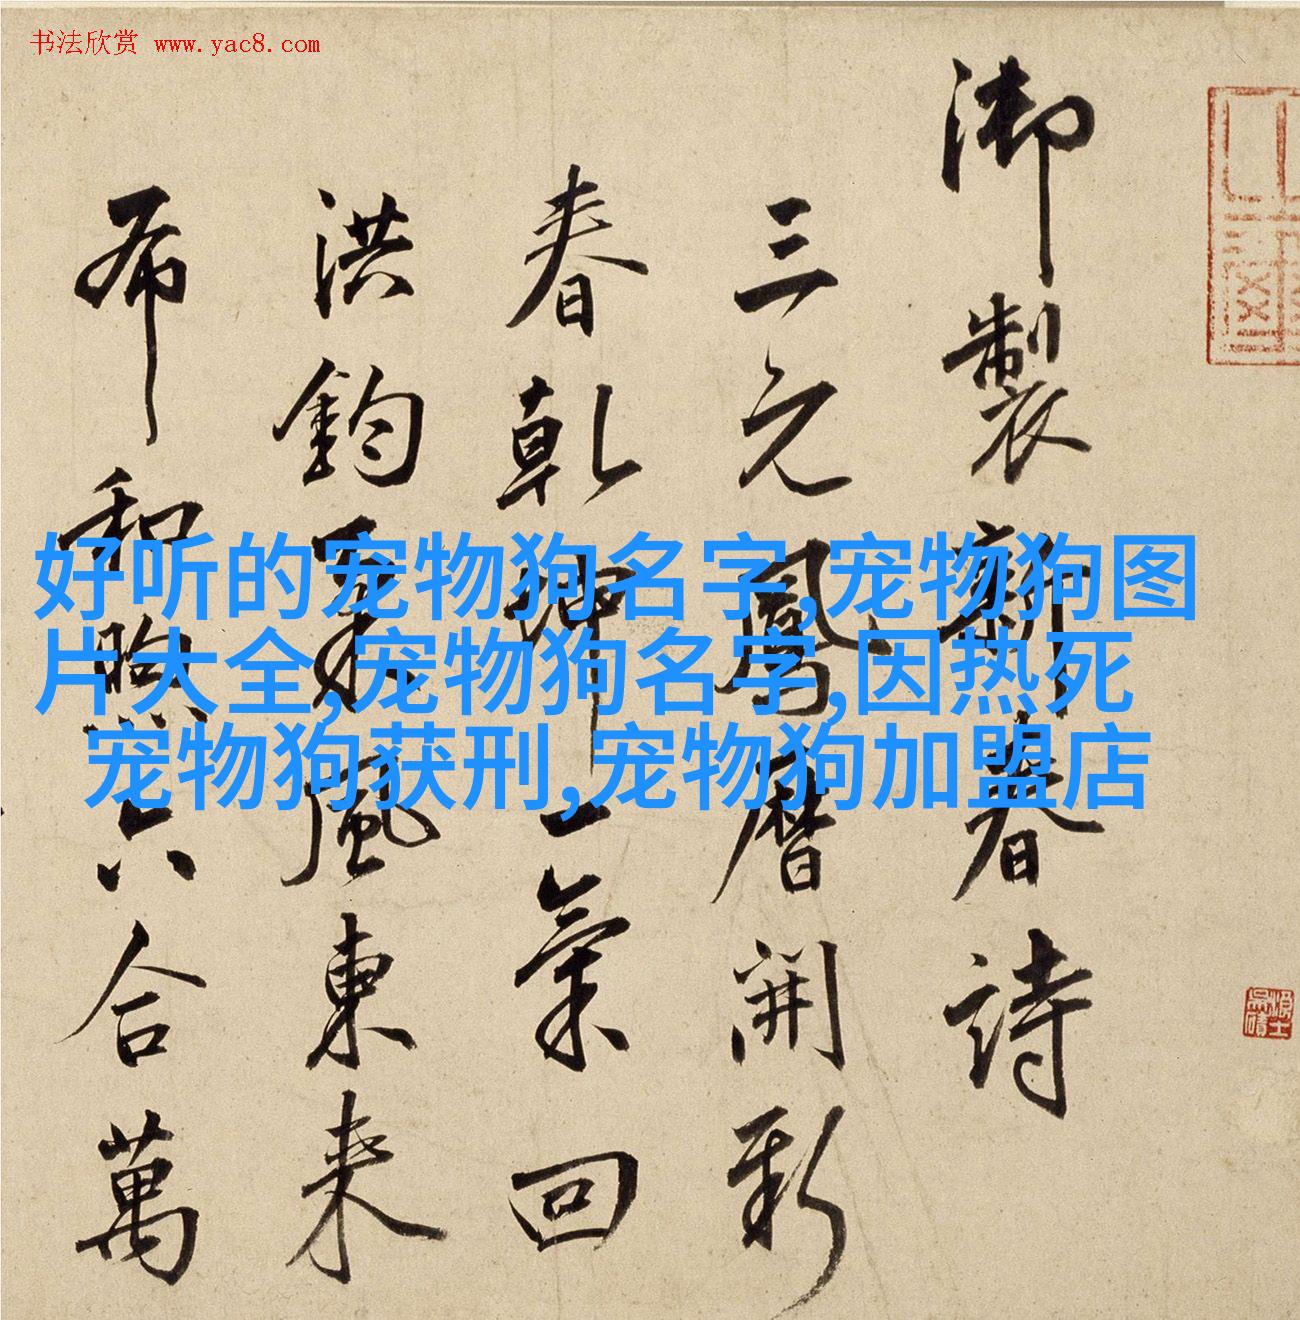 书法欣赏 www.yac8.com
御製新春詩
三元鳳曆開新
春乾坤一氣回
洪鈞風東来
布和煦六合萬
好听的宠物狗名字,宠物狗图
片大全,宠物狗名字,因热死
宠物狗获刑,宠物狗加盟店